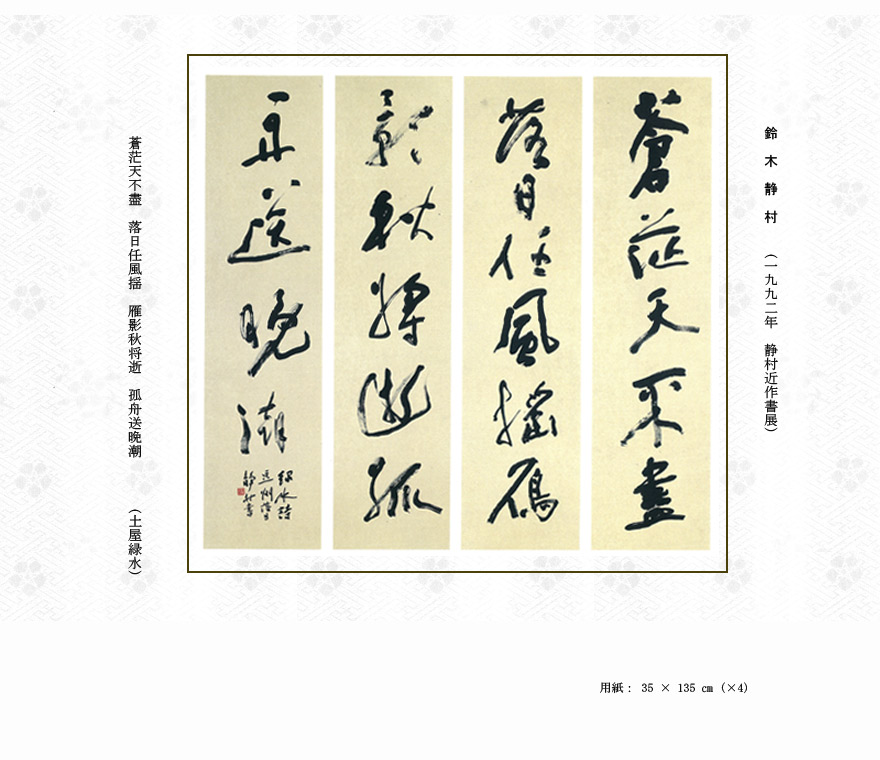 鈴木静村　（一九九二年　静村近作書展）
蒼茫天不盡
落日任風揺鴈
影秋将逝孤
舟送晩潮
緑水詩
静村書
蒼茫天不盡　落日任風揺　雁影秋将逝　孤舟送晩潮　（土屋緑水）
用紙： 35 × 135 cm (×4)